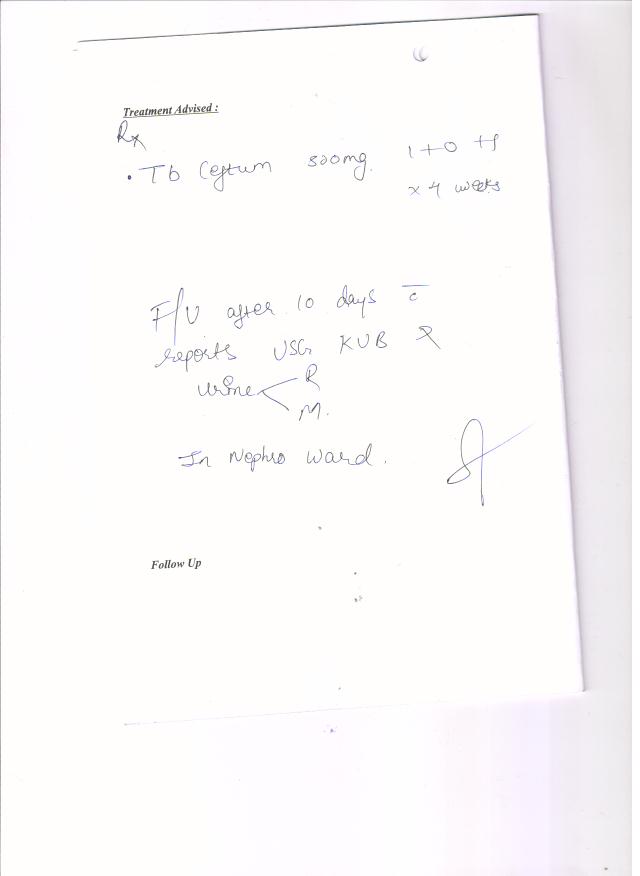 Treatment Advised :
Rx
• Tb Ceftum 500mg. 1+0+1
x 4 weeks
F/U after 10 days c̅
reports USG KUB &
urine R
M.
In Nephro Ward.
Follow Up